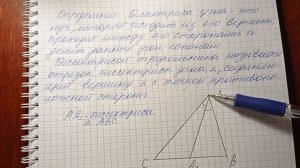 Определение Биссектриса угла - это
луч, который исходит из его вершины,
проходит между его сторонами и
делит данный угол пополам.
Биссектрисой треугольника называется
отрезок биссектрисы угла Δ, соединяю-
щий вершину с точкой противопо-
ложной стороны.
AA₁ - биссектриса
Δ ABC
C A₁ B